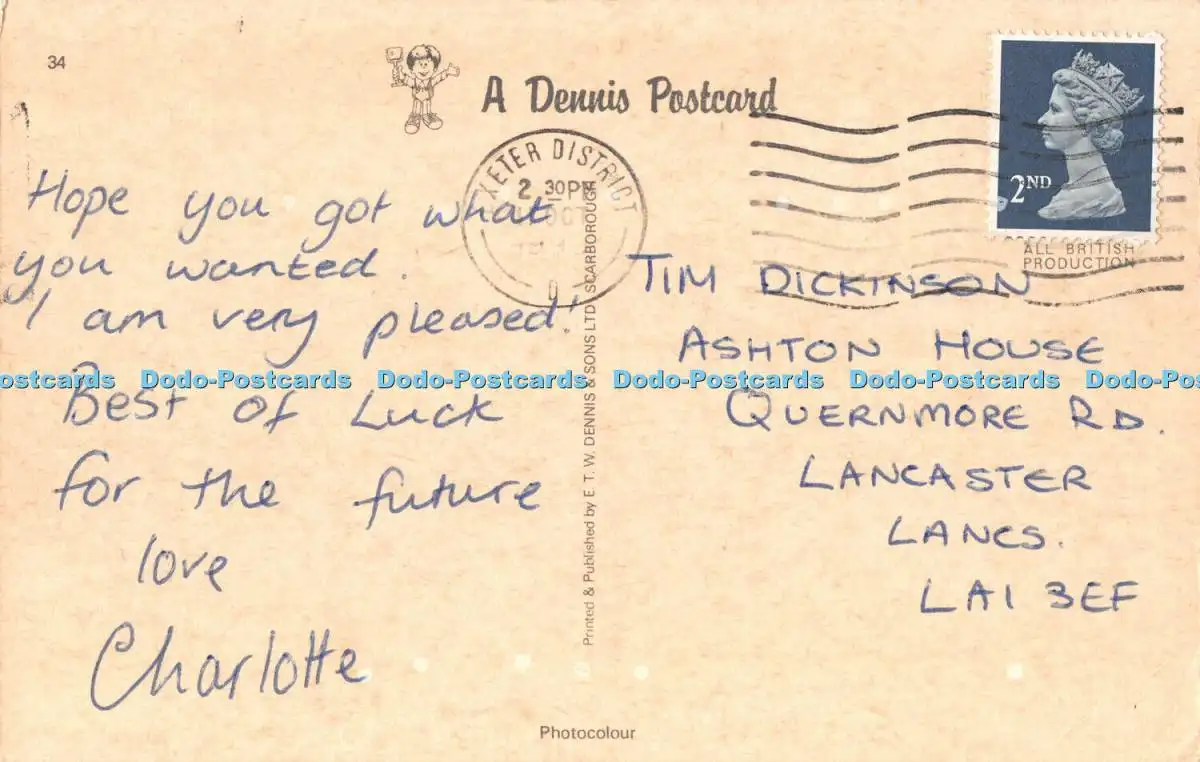 34
A Dennis Postcard
EXETER DISTRICT
2 30PM
OCT
2ND
ALL BRITISH
PRODUCTION
Hope you got what
you wanted.
I am very pleased!
Best of Luck
for the future
love
Charlotte
Printed & Published by E. T. W. DENNIS & SONS LTD SCARBOROUGH
TIM DICKINSON
ASHTON HOUSE
QUERNMORE RD.
LANCASTER
LANCS.
LA1 3EF
ostcards Dodo-Postcards Dodo-Postcards Dodo-Postcards Dodo-Postcards Dodo-Pos
Photocolour